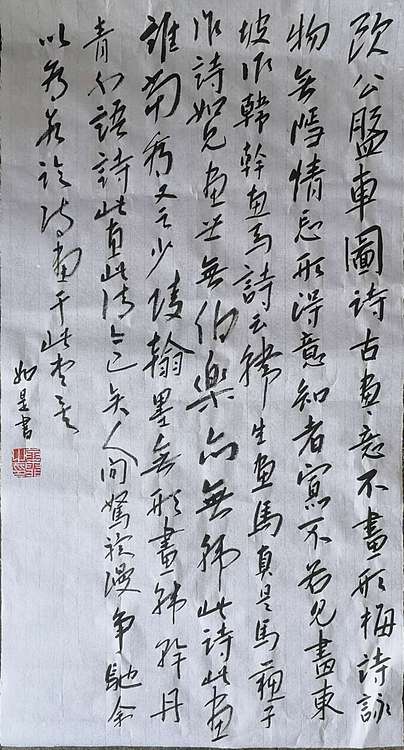 欧公盤車圖詩古畫畫意不畫形梅詩詠
物無隱情忘形得意知者寡不若見畫東
坡作韓幹畫馬詩云韓生畫馬真是馬蘇子
作詩如見畫世無伯樂亦無韓此詩此畫
誰當看又云少陵翰墨無形畫韓幹丹
青不語詩此畫此詩今已矣人間駑驥漫爭馳余
以為若論詩畫于此盡矣
如是書